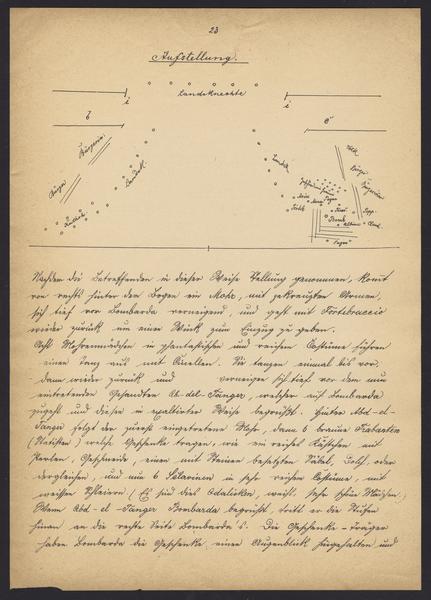 23
Aufstellung.
Landsknechte
i
i
6
6
Bürgerin.
Bürger
Landsk.
Landsk.
Volk
Bürger
Bürgerin
Pagen
Pagen
Nachdem die Betreffenden in dieser Weise Stellung genommen, kommt
von rechts hinter dem Bogen ein Mohr, mit gekreuzten Armen,
sich tief vor Lombarda verneigend, und geht mit Fortebraccio
wieder zurück um einen Wink zum Einzug zu geben.
Acht Mohrenmädchen in phantastischen und reichen Costüme führen
einen Tanz auf mit Quasten. Sie tanzen einmal bis vor,
dann wieder zurück und verneigen sich tief vor dem nun
eintretenden Gesandten Abd-el-Sanger, welcher auf Lombarda
zugeht und diese in exaltirter Weise begrüßt. Hinter Abd-el-
Sanger folgt der zuerst eingetretene Mohr, dann 6 braune Kabarten
(Statisten) welche Geschenke tragen, wie ein reiches Kästchen mit
Perlen, Geschmeide, einen mit Steinen besetzten Säbel, Dolch, oder
dergleichen, und nun 6 Sclavinen in sehr reichen Costüme, mit
weissen Schleiern (Es sind dies Odalisken, weiß, sehr schöne Mädchen.)
Wenn Abd-el-Sanger Lombarda begrüßt, tritt er die Stufen
hinan an die rechte Seite Lombarda's. Die Geschenke-Träger
haben Lombarda die Geschenke einen Augenblick hingehalten und